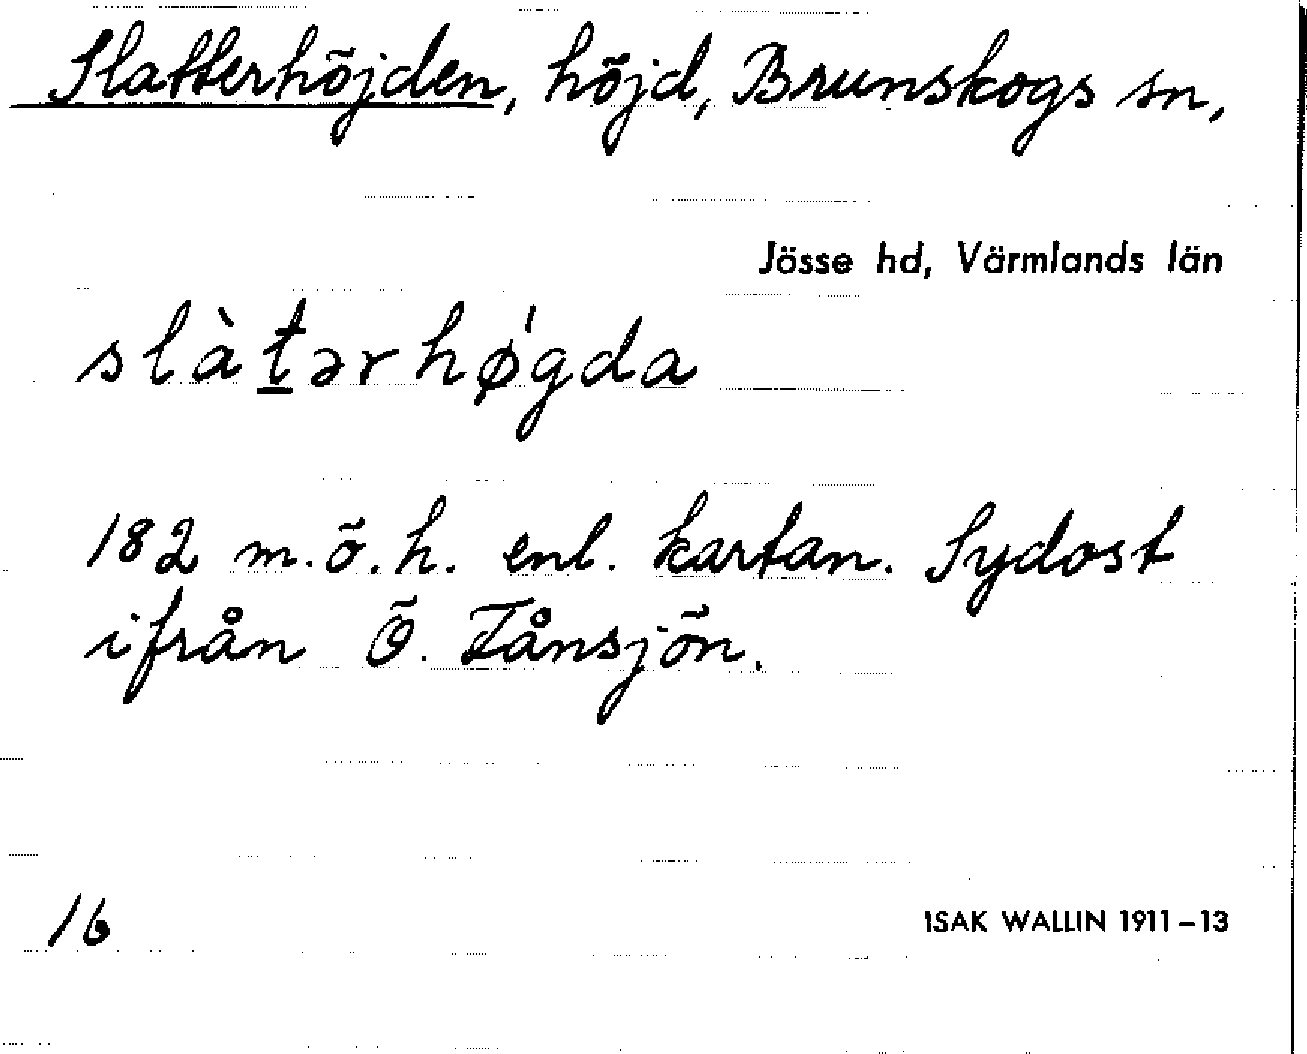 Slatterhöjden, höjd, Brunskogs sn,
Jösse hd, Värmlands län
slàt̲ərhǿgda
182 m.ö.h. enl. kartan. Sydost
ifrån Ö. Tånsjön.
16
ISAK WALLIN 1911-13